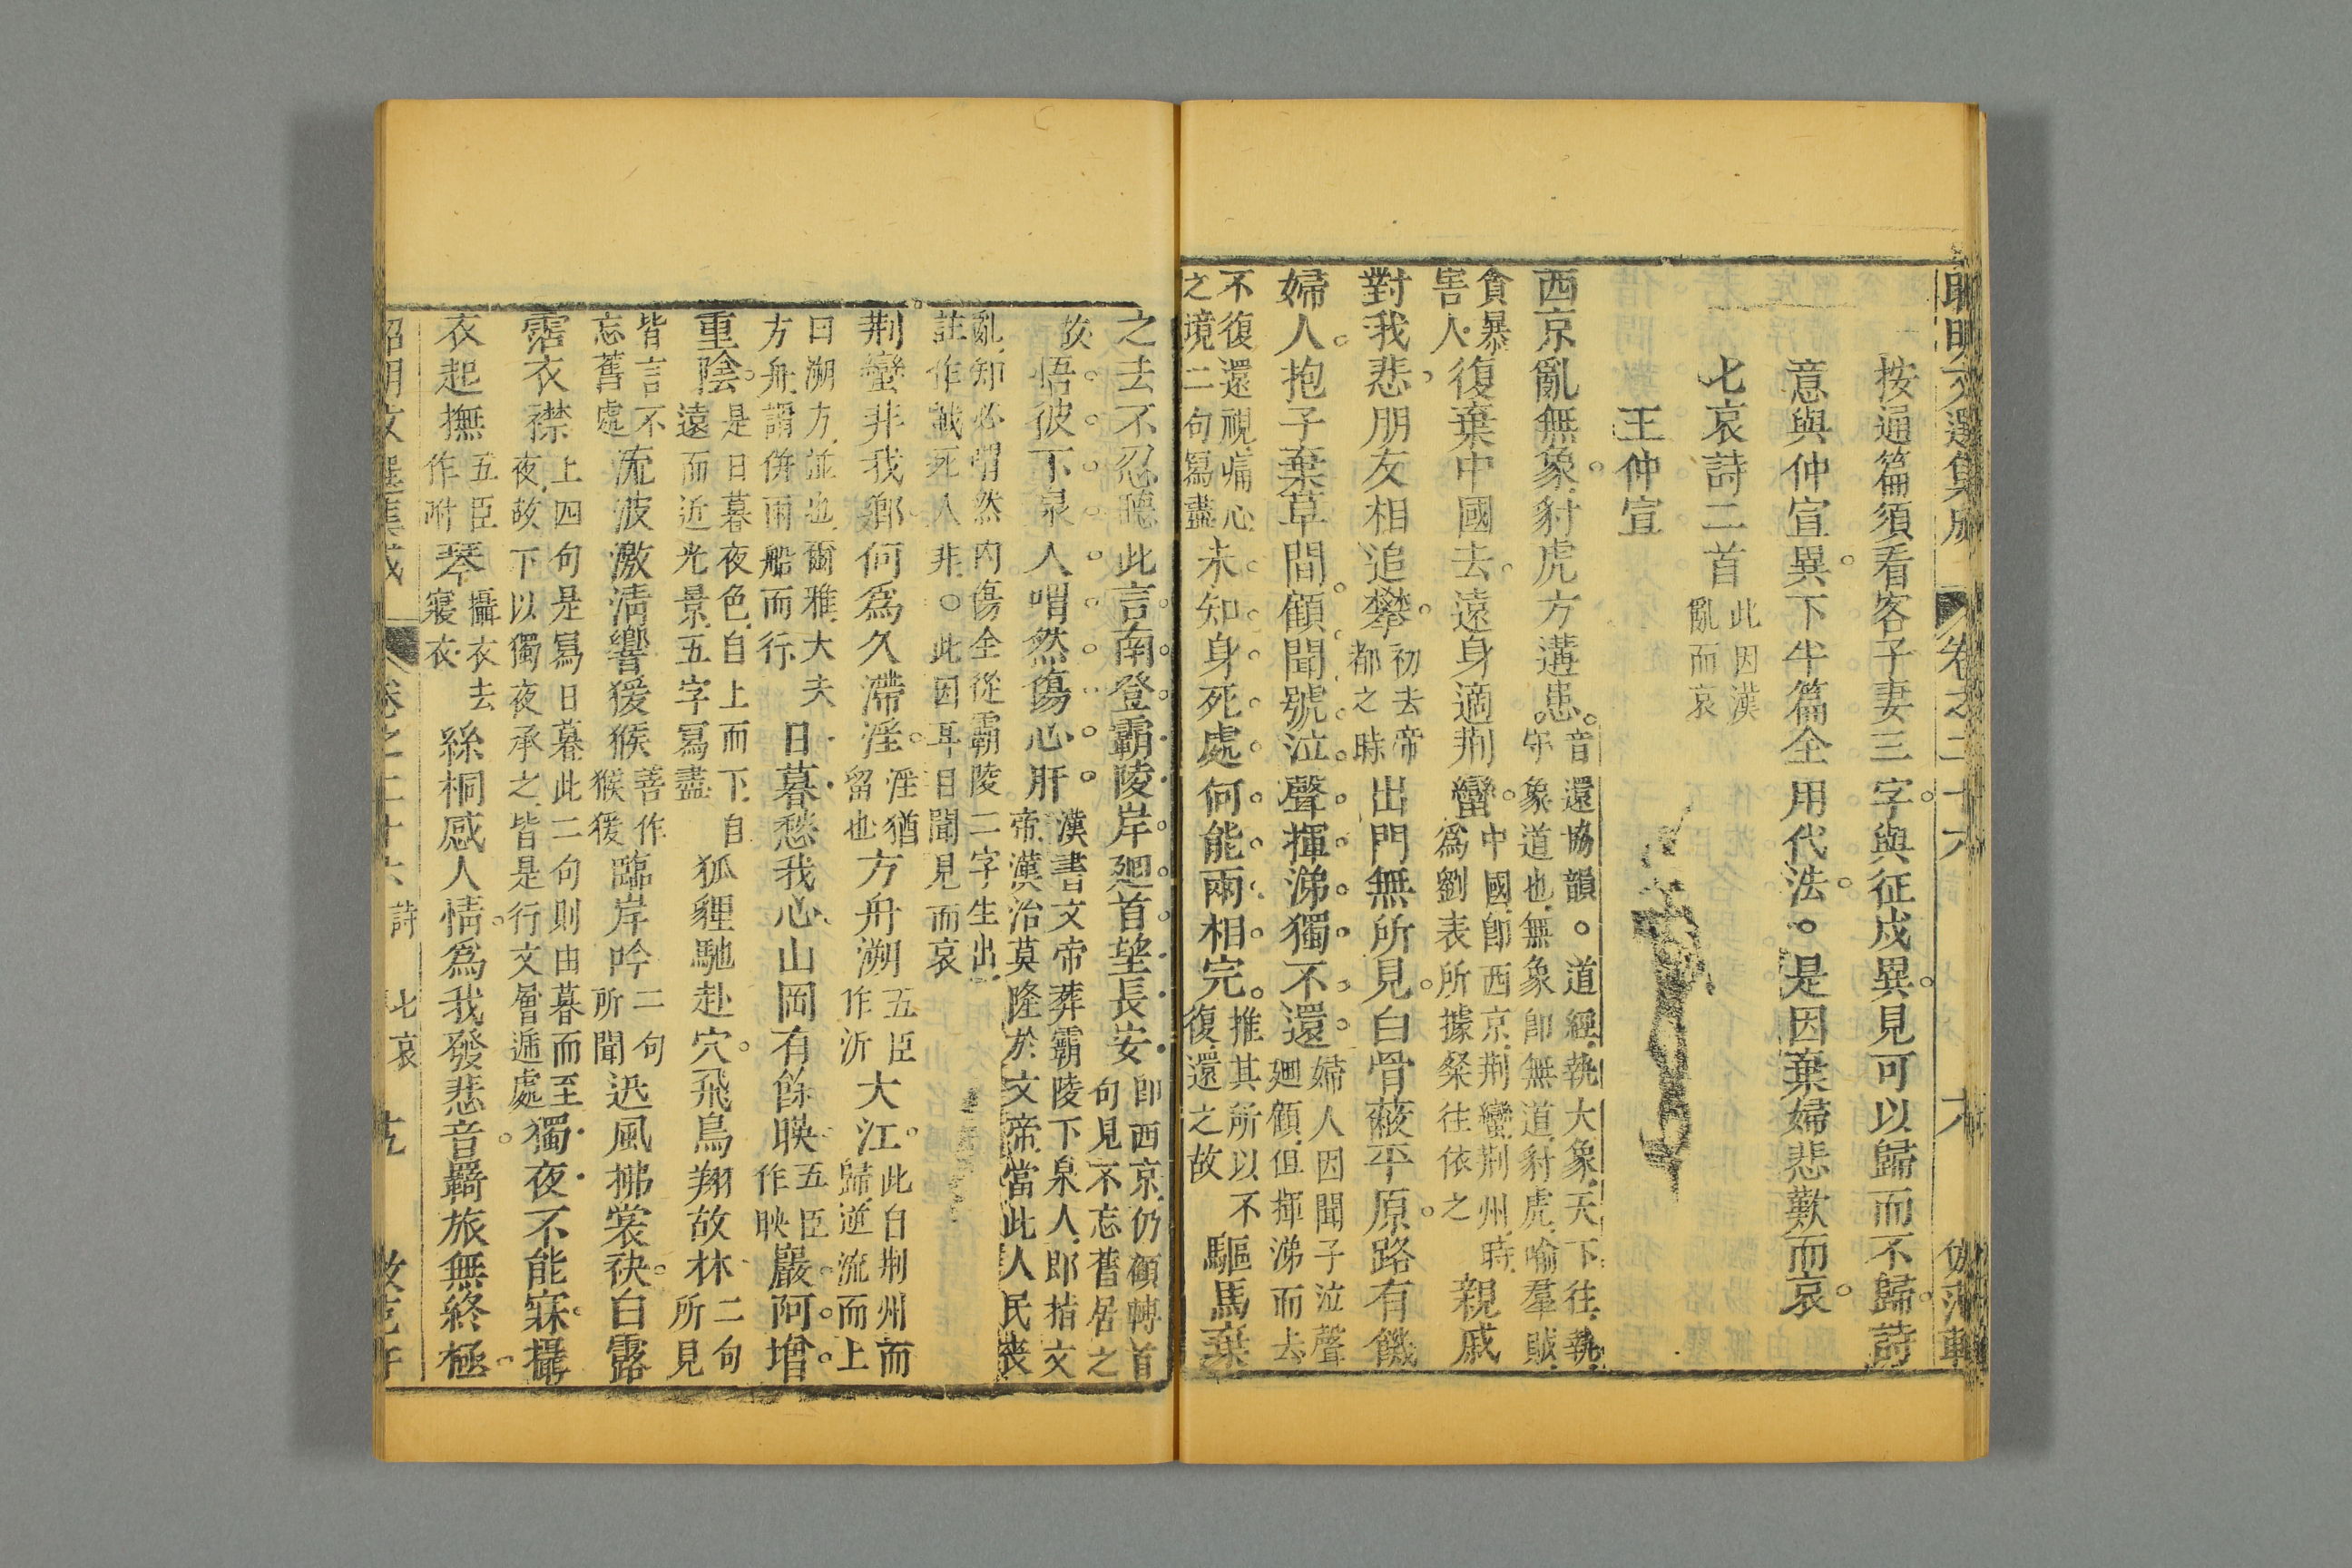 昭明文選集成 卷之二十六 六 倣范軒
按通篇須看客子妻三字與征戍異見可以歸而不歸詩
意與仲宣異下半篇全用代法是因棄婦悲歎而哀
七哀詩二首
此因漢
亂而哀
王仲宣
西京亂無象豺虎方遘患
音還協韻○道經執大象天下往執
牢象道也無象卽無道豺虎喻羣賊
貪暴
害人
復棄中國去遠身適荆蠻
中國卽西京荆蠻荆州時
爲劉表所據粲往依之
親戚
對我悲朋友相追攀
初去帝
都之時
出門無所見白骨蔽平原路有饑
婦人抱子棄草間顧聞號泣聲揮涕獨不還
婦人因聞子泣聲
廻顧但揮涕而去
不復還視痛心
之境二句寫盡
未知身死處何能兩相完
推其所以不
復還之故
驅馬棄
之去不忍聽此言南登霸陵岸廻首望長安
卽西京仍顧轉首
句見不忘舊居之
故
悟彼下泉人喟然傷心肝
漢書文帝葬霸陵下泉人郎指文
帝漢治莫隆於文帝當此人民喪
亂知必喟然內傷全從霸陵二字生出
註作誠死人非○此因耳目聞見而哀
荆蠻非我鄉何爲久滯淫
淫猶
留也
方舟溯
五臣
作泝
大江
此自荆州而
歸逆流而上
曰溯方並也爾雅大夫
方舟謂併兩船而行
日暮愁我心山岡有餘映
五臣
作映
巖阿增
重陰
是日暮夜色自上而下自
遠而近光景五字寫盡
狐貍馳赴穴飛鳥翔故林
二句
所見
皆言不
忘舊處
流波激清響猨猴
善作
猴猨
臨岸吟
二句
所聞
迅風拂裳袂白露
霑衣襟
上四句是寫日暮此二句則由暮而至
夜故下以獨夜承之皆是行文層遞處
獨夜不能寐攝
衣起撫
五臣
作拊
琴
攝衣去
寢衣
絲桐感人情爲我發悲音羇旅無終極
昭明文選集成 卷之二十六 詩 七哀